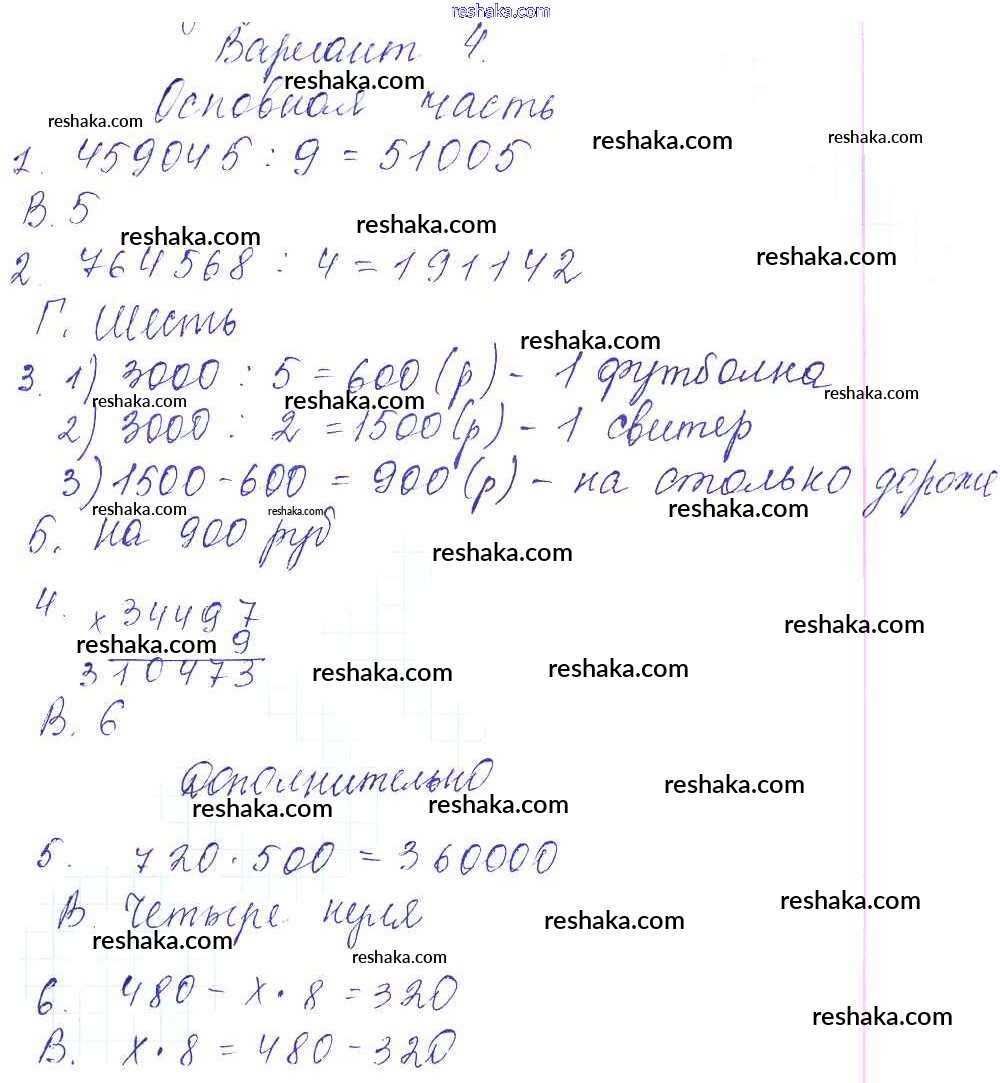 reshaka.com
Вариант 4.
reshaka.com
Основная часть
reshaka.com reshaka.com reshaka.com
1. 459045 : 9 = 51005
В. 5
reshaka.com reshaka.com reshaka.com
2. 764568 : 4 = 191142
Г. Шесть
reshaka.com
3. 1) 3000 : 5 = 600 (р) - 1 футболка
reshaka.com reshaka.com reshaka.com
2) 3000 : 2 = 1500 (р) - 1 свитер
3) 1500 - 600 = 900 (р) - на столько дороже
reshaka.com reshaka.com reshaka.com
Б. на 900 руб
reshaka.com
4. х 34497
reshaka.com 9 reshaka.com
310473
reshaka.com reshaka.com
В. 6
Дополнительно
reshaka.com reshaka.com reshaka.com
5. 720 · 500 = 360000
В. Четыре нуля
reshaka.com reshaka.com reshaka.com
reshaka.com
6. 480 - х · 8 = 320
reshaka.com
В. х · 8 = 480 - 320